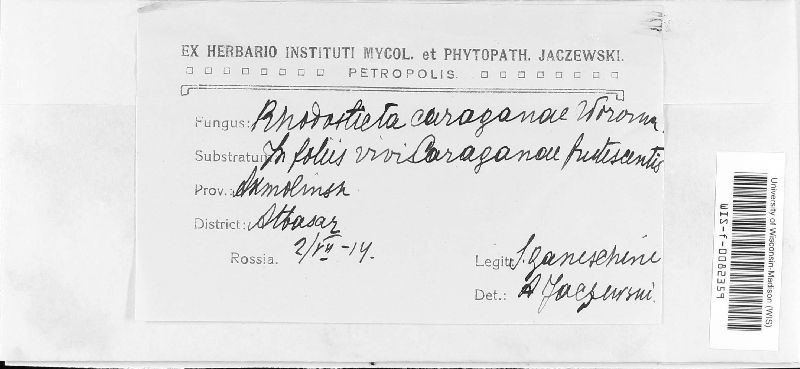 EX HERBARIO INSTITUTI MYCOL. et PHYTOPATH. JACZEWSKI.
PETROPOLIS.
Fungus: Rhodosticta caraganae Woronw.
Substratum: In foliis vivi Caraganae frutescentis
Prov.: Akmolinsk
District: Atbasar
Rossia. 2/VII-14.
Legit: S. Ganeschine
Det.: A Jaczewski.
University of Wisconsin-Madison (WIS)
WIS-f-0082359